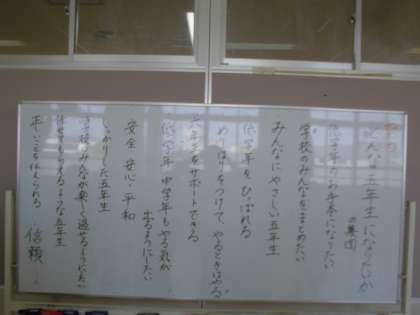 どんな五年生になりたいか
の集団
低学年のお手本になりたい
学校のみんなをまとめたい
みんなにやさしい五年生
低学年をひっぱれる
めりはりをつけて、やるときはやる。
六年生をサポートできる
低学年、中学年もやる気が
出るようにしたい
安全 安心 平和
しっかりした五年生
学校のみんなが楽しく過せるようにしたい
任せてもらえるような五年生
正しいことを伝えられる
信頼